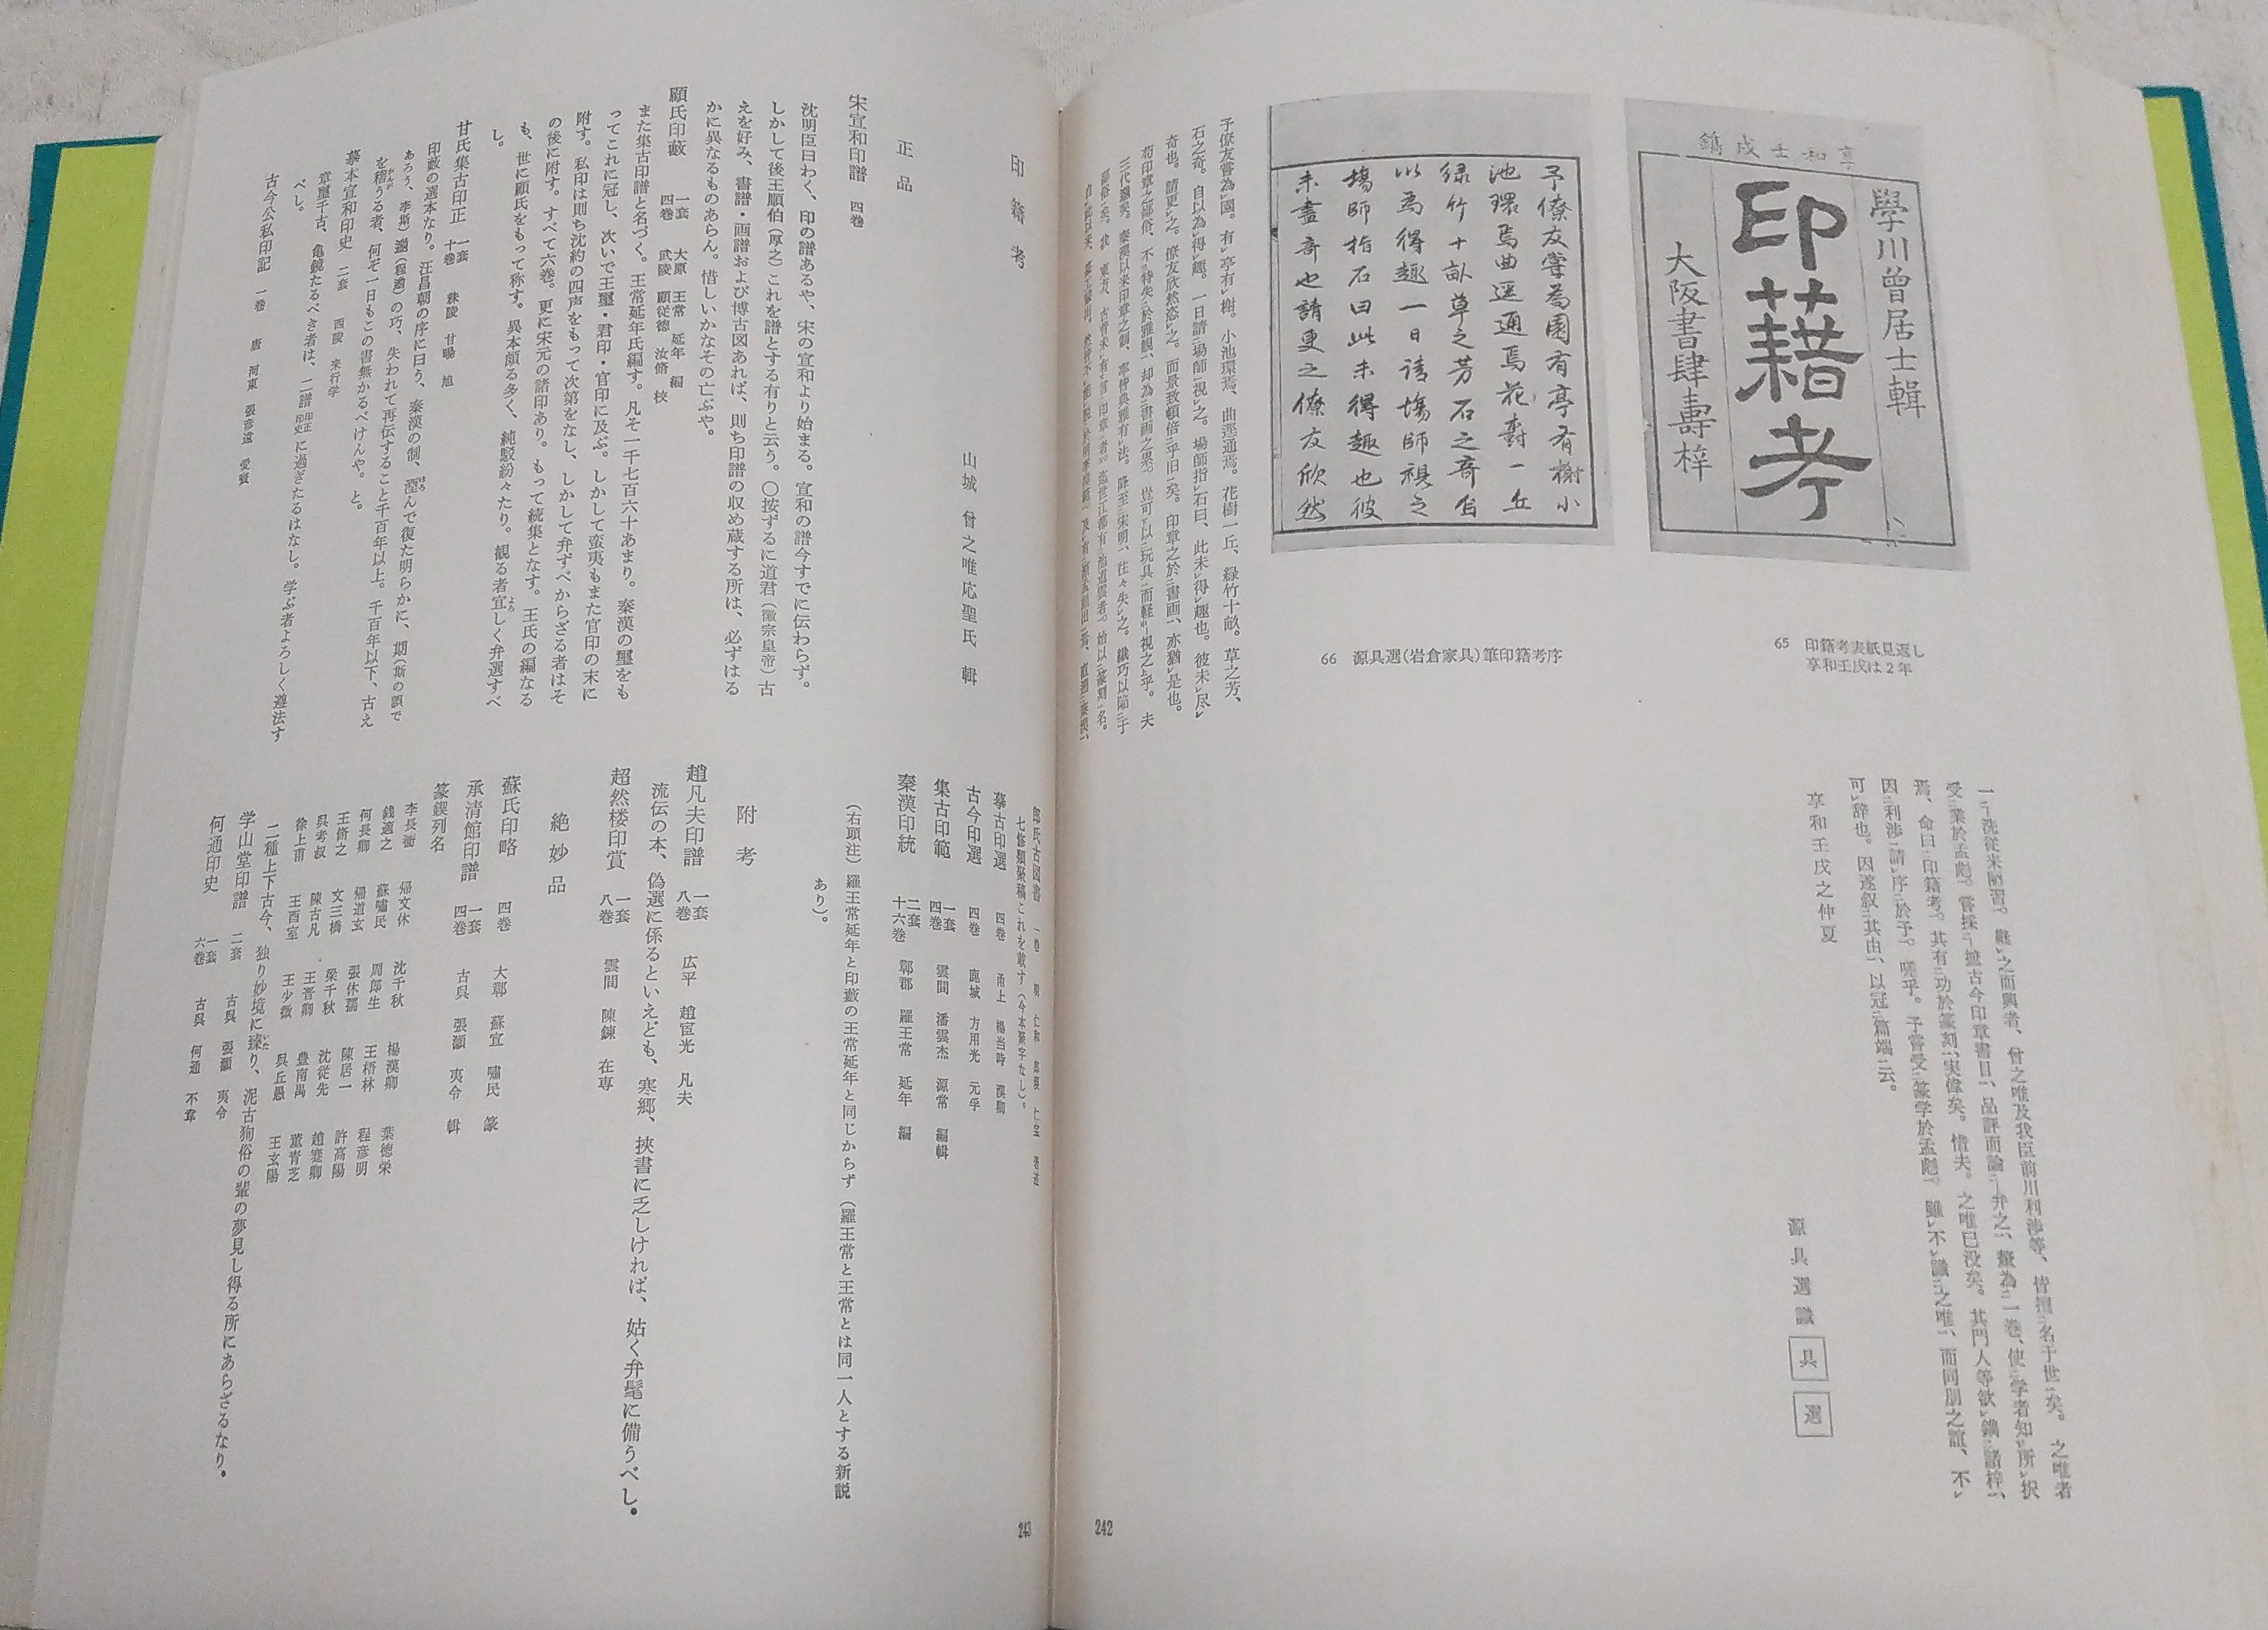 享和壬戌鐫
學川曾居士輯
印籍考
大阪書肆壽梓
65 印籍考表紙見返し
享和壬戌は2年
予僚友嘗為園有亭有榭小
池環焉曲逕通焉花樹一丘
緑竹十畝草之芳石之奇自
以為得趣一日請場師視之
場師指石曰此未得趣也彼
未盡奇也請更之僚友欣然
66 源具選(岩倉家具)筆印籍考序
予僚友嘗為園。有亭有榭。小池環焉、曲逕通焉。花樹一丘、緑竹十畝。草之芳、
石之奇。自以為得趣。一日請場師視之。場師指石曰、此未得趣也。彼未尽
奇也。請更之。僚友欣然恣之。而景致頓倍乎旧矣。印章之於書画、亦猶是也。
苟印章之鄙俗、不特失於雅観、却為書画之累。豈可以玩具而軽視之乎。夫
一洗従来陋習。継之而興者、曾之唯及我臣前川利渉等、皆擅名于世矣。之唯者
受業於孟彪。嘗採摭古今印章書目、品評而論弁之、彙為一巻、使学者知所択
焉、命曰印籍考。其有功於篆刻、実偉矣。惜夫。之唯已没矣。其門人等欲鐫諸梓、
因利渉請序於予。嗟乎。予嘗受篆学於孟彪。雖不識之唯、而同朋之誼、不
可辞也。因遂叙其由、以冠篇端云。
享和壬戌之仲夏
源具選識 具 選
242
印籍考
山城 曾之唯応聖氏 輯
正品
宋宣和印譜 四巻
沈明臣曰わく、印の譜あるや、宋の宣和より始まる。宣和の譜今すでに伝わらず。
しかして後王順伯(厚之)これを譜とする有りと云う。〇按ずるに道君(徽宗皇帝)古
えを好み、書譜・画譜および博古図あれば、則ち印譜の収め蔵する所は、必ずはる
かに異なるものあらん。惜しいかなその亡ぶや。
顧氏印藪 一套 四巻 大原 王常 延年 編 武陵 顧従徳 汝脩 校
また集古印譜と名づく。王常延年氏編す。凡そ一千七百六十あまり。秦漢の璽をも
ってこれに冠し、次いで王璽・君印・官印に及ぶ。しかして蛮夷もまた官印の末に
附す。私印は則ち沈約の四声をもって次第をなし、しかして弁ずべからざる者はそ
の後に附す。すべて六巻。更に宋元の諸印あり。もって続集となす。王氏の編なる
も、世に顧氏をもって称す。異本頗る多く、純駁紛々たり。観る者宜しく弁選すべ
し。
甘氏集古印正 一套 十巻 秣陵 甘暘 旭
印藪の選本なり。汪昌朝の序に曰う、秦漢の制、湮んで復た明らかに、期(斯の誤で
あろう、李斯)邈(程邈)の巧、失われて再伝すること千百年以上。千百年以下、古え
を稽うる者、何ぞ一日もこの書無かるべけんや。と。
摹本宣和印史 二套 西陵 来行学
章璽千古、亀鏡たるべき者は、二譜印正印史に過ぎたるはなし。学ぶ者よろしく遵法す
べし。
古今公私印記 一巻 唐 河東 張彦遠 愛賓
郎氏古図書 一巻 明 仁和 郎瑛 仁宝 著述
七修類稾稿これを載す(今本稾字なし)。
摹古印選 四巻 甬上 楊当時 漢卿
古今印選 四巻 鹿城 方用光 元孚
集古印範 一套 四巻 雲間 潘雲杰 源常 編輯
秦漢印統 二套 十六巻 鄣郡 羅王常 延年 編
(右頭注)羅王常延年と印藪の王常延年と同じからず(羅王常と王常とは同一人とする新説
あり)。
附考
趙凡夫印譜 一套 八巻 広平 趙宧光 凡夫
流伝の本、偽選に係るといえども、寒郷、挟書に乏しければ、姑く弁髦に備うべし。
超然楼印賞 一套 八巻 雲間 陳錬 在専
絶妙品
蘇氏印略 四巻 大鄣 蘇宣 嘯民 篆
承清館印譜 一套 四巻 古呉 張灝 夷令 輯
篆鍥列名
李長蘅 帰文休 沈千秋 楊漢卿 葉徳栄
銭適之 蘇嘯民 周郎生 王梧林 程彦明
何長卿 帰道玄 張休孺 陳居一 許高陽
王脩之 文三橋 梁千秋 沈従先 趙蹇卿
呉考叔 陳古凡 王晋卿 豊南禺 董青芝
徐上甫 王酉室 王少微 呉丘愚 王玄陽
二種上下古今、独り妙境に臻り、泥古狥俗の輩の夢見し得る所にあらざるなり。
学山堂印譜 二套 古呉 張灝 夷令
何通印史 一套 六巻 古呉 何通 不韋
243